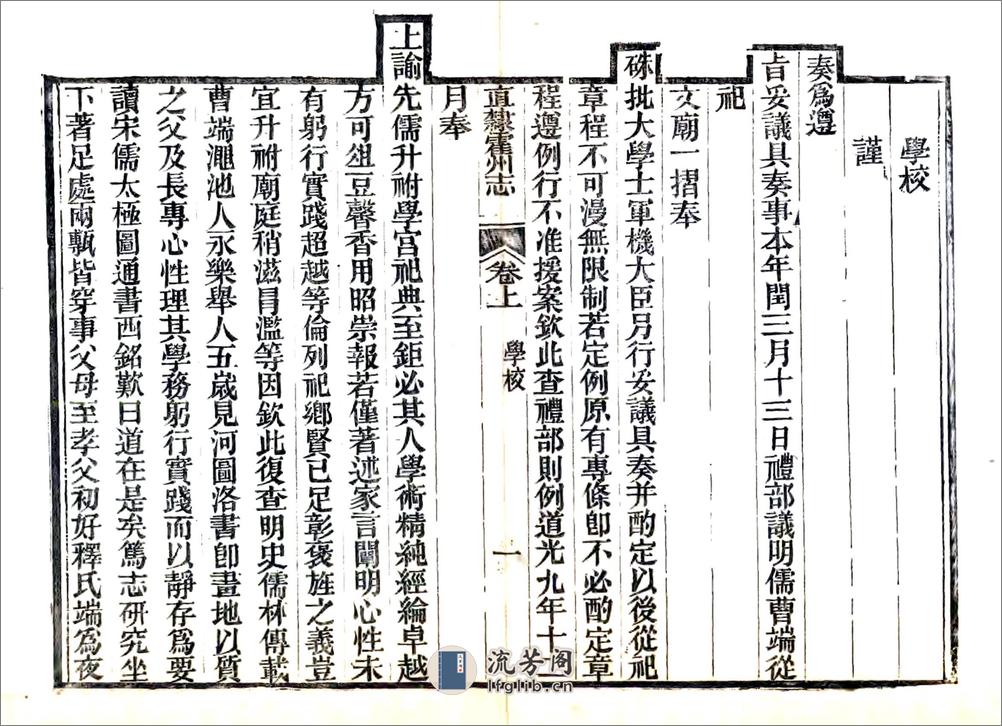 學校
謹
奏爲遵
旨妥議具奏事本年閏三月十三日禮部議明儒曹端從
祀
文廟一摺奉
硃批大學士軍機大臣另行妥議具奏并酌定以後從祀
章程不可漫無限制若定例原有專條卽不必酌定章
程遵例行不准援案欽此查禮部則例道光九年十一
直隸霍州志
卷上
學校
一
月奉
上諭先儒升祔學宮祀典至鉅必其人學術精純經綸卓越
方可俎豆馨香用昭崇報若僅著述家言闡明心性未
有躬行實踐超越等倫列祀鄉賢已足彰褒旌之義豈
宜升祔廟庭稍滋冒濫等因欽此復查明史儒林傳載
曹端澠池人永樂舉人五歲見河圖洛書卽畫地以質
之父及長專心性理其學務躬行實踐而以靜存爲要
讀宋儒太極圖通書西銘歎曰道在是矣篤志研究坐
下著足處兩甎皆穿事父母至孝父初好釋氏端爲夜
流芳阁
lfglib.cn